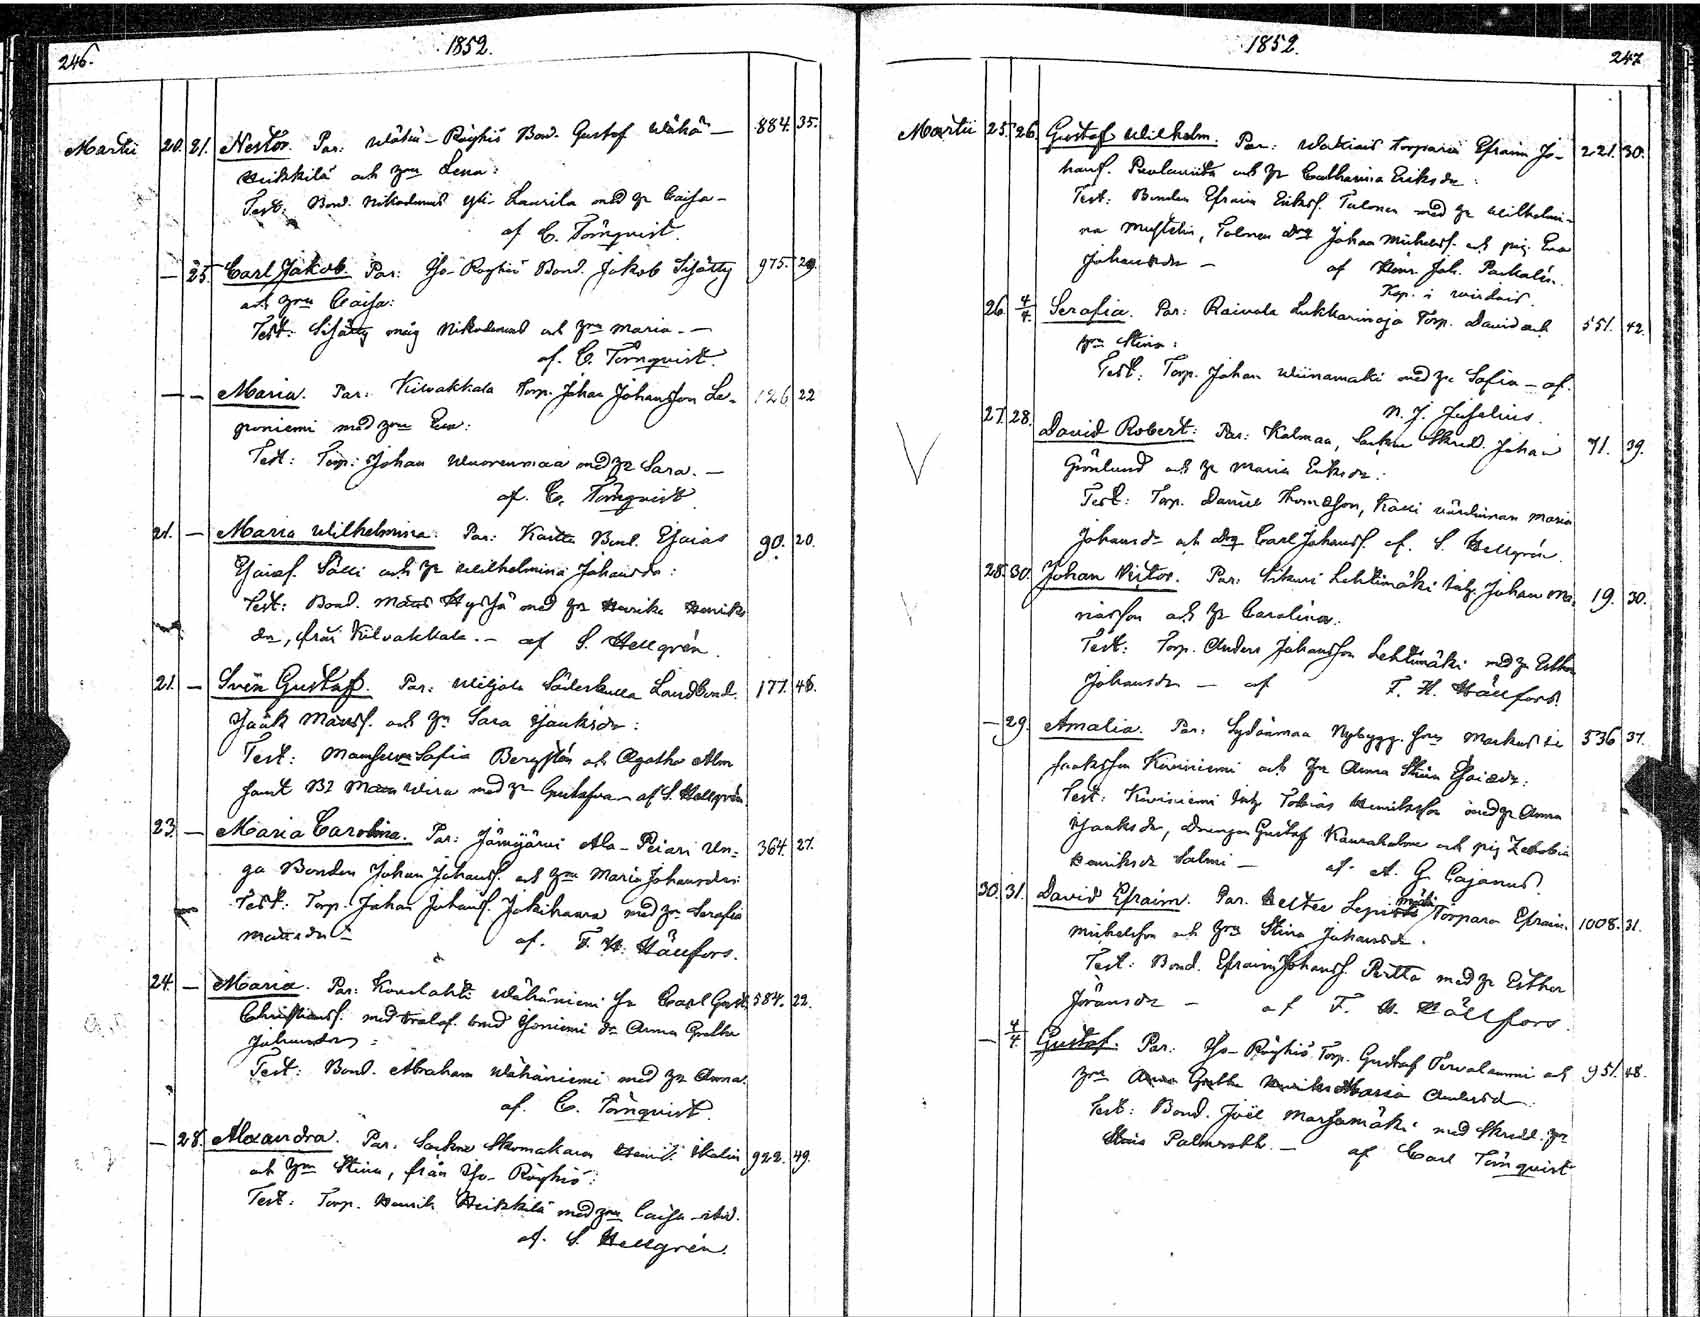 246.
1852.
Martii 20. 21. Nestor. Par: Wähä-Röyhiö Bond. Gustaf Wähä- 884. 35.
Heikkilä och hru Lena:
Test: Bond. Nikodemus Yli-Laurila med hr Caisa-
af C. Törnquist.
— 25 Carl Jakob. Par: Yso-Röyhiö Bond. Jakob Sisätty 975. 29.
och hru Caisa:
Test: Sisätty måg Nikodemus och hru Maria. —
af. C. Törnquist.
— — Maria. Par: Kilvakkala Torp. Johan Johansson Le- 126 22
poniemi med hru Eva:
Test: Torp: Johan Wuorenmaa med hr Sara. —
af. C. Törnquist
21. — Maria Wilhelmina: Par: Bond. Esaias 90. 20.
Esaiasf. Sälli och hr Wilhelmina Johansdr:
Test: Bond. Matts Hyssä med hr Henrika Henriks
dr, från Kilvakkala. — af S. Hellgrén.
21. — Sven Gustaf. Par: Wiljala Söderkulla Landbond. 177. 46.
Isaak Mattsf. och hr Sara Isaksdr:
Test: Mamseln Sofia Bergstén och Agatha Alm
samt Bd Matts Wira med hr Gustafva af S. Hellgrén.
23. — Maria Carolina. Par: Jämijärvi Ala-Peiari Un= 364. 27.
ga Bonden Johan Johansf. och hru Maria Johansdr:
Test: Torp. Johan Johansf. Jokihaara med hr Serafia
Mattsdr — af. F. H. Hällfors.
24. — Maria. Par: Kovelahti Wähäniemi Carl Gust. 584. 22.
Christiansf. med trolof. brud Isoniemi dr Anna Gretha
Johansdr:
Test: Bond. Abraham Wähäniemi med hr Anna.
af. C. Törnquist.
— 28. Alexandra. Par. Sockne Skomakaren Henrik Skalin 922. 49.
och hru Stina, från Yso-Röyhiö:
Test: Torp. Henrik Heikkilä med hru Caisa
af. S. Hellgrén.
1852.
247
Martii 25. 26. Gustaf Wilhelm. Par: Torparen Efraim Jo- 221. 30.
hansf. och hr Catharina Eriksdr:
Test: Bonden Efraim Eriksf. Talonen med hr Wilhelmi-
na Mustelin, Talonen drg Johan Michelsf. och pig. Eva
Johansdr — af Henr. Joh. Pachalén.
Kap. i Virdois.
26. 4/4. Serafia. Par: Raivala Lukkarinoja Torp. David och 551. 42.
hru Stina:
Test: Torp. Johan Wiinamäki med hr Sofia — af.
N. J. Juselius.
27. 28. David Robert: Par: Kalmaa, Sockne Skredd. Johan 71. 39.
Grönlund och hr Maria Eriksdr:
Test: Torp. Daniel Thomasson, Kalli värdinnan Maria
Johansdr och drg Carl Johansf. af. S. Hellgrén.
28. 30. Johan Viktor. Par: Sikuri Lehtimäki Johan Ma- 19. 30.
tiasson och hr Carolina:
Test: Torp. Anders Johansson Lehtimäki med hr Esther
Johansdr — af F. H. Hällfors.
— 29. Amalia. Par: Sydänmaa Nybygg. Markus 536 37.
Isaksson Kiviniemi och hr Anna Stina Esaiædr:
Test: Kiviniemi Tobias Henriksson med hr Anna
Isaaksdr, Drengen Gustaf Kauraholma och pig Zenobia
Henriksdr Salmi — af. A. G. Cajanus.
30. 31. David Efraim. Par. Heltee Lepistömäki Torparen Efraim 1008. 31.
Michelsson och hru Stina Johansdr.
Test: Bond. Efraim Johansf. Rutta med hr Esther
Göransdr — af F. H. Hällfors.
— 4/4. Gustaf. Par: Yso-Röyhiö Torp. Gustaf Tervalammi och 951. 48.
hru Anna Gretha Maria Andersdr:
Test: Bond. Joël Marjamäki med Skredd. hr
Palmroth. — af Carl Törnquist